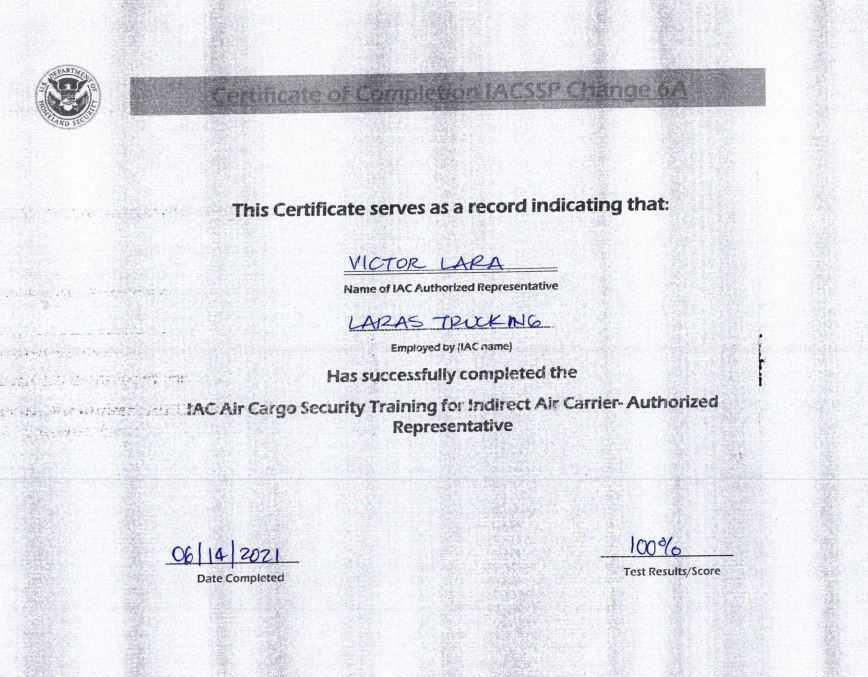 U.S. DEPARTMENT OF HOMELAND SECURITY
Certificate of Completion IACSSP Change 6A
This Certificate serves as a record indicating that:
VICTOR LARA
Name of IAC Authorized Representative
LARAS TRUCKING
Employed by (IAC name)
Has successfully completed the
IAC Air Cargo Security Training for Indirect Air Carrier- Authorized
Representative
06/14/2021
Date Completed
100%
Test Results/Score